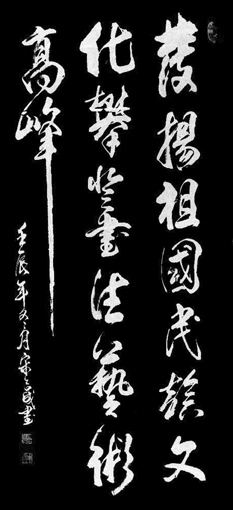 發揚祖國民族文
化攀登書法藝術
高峰
壬辰年五月宋之民書